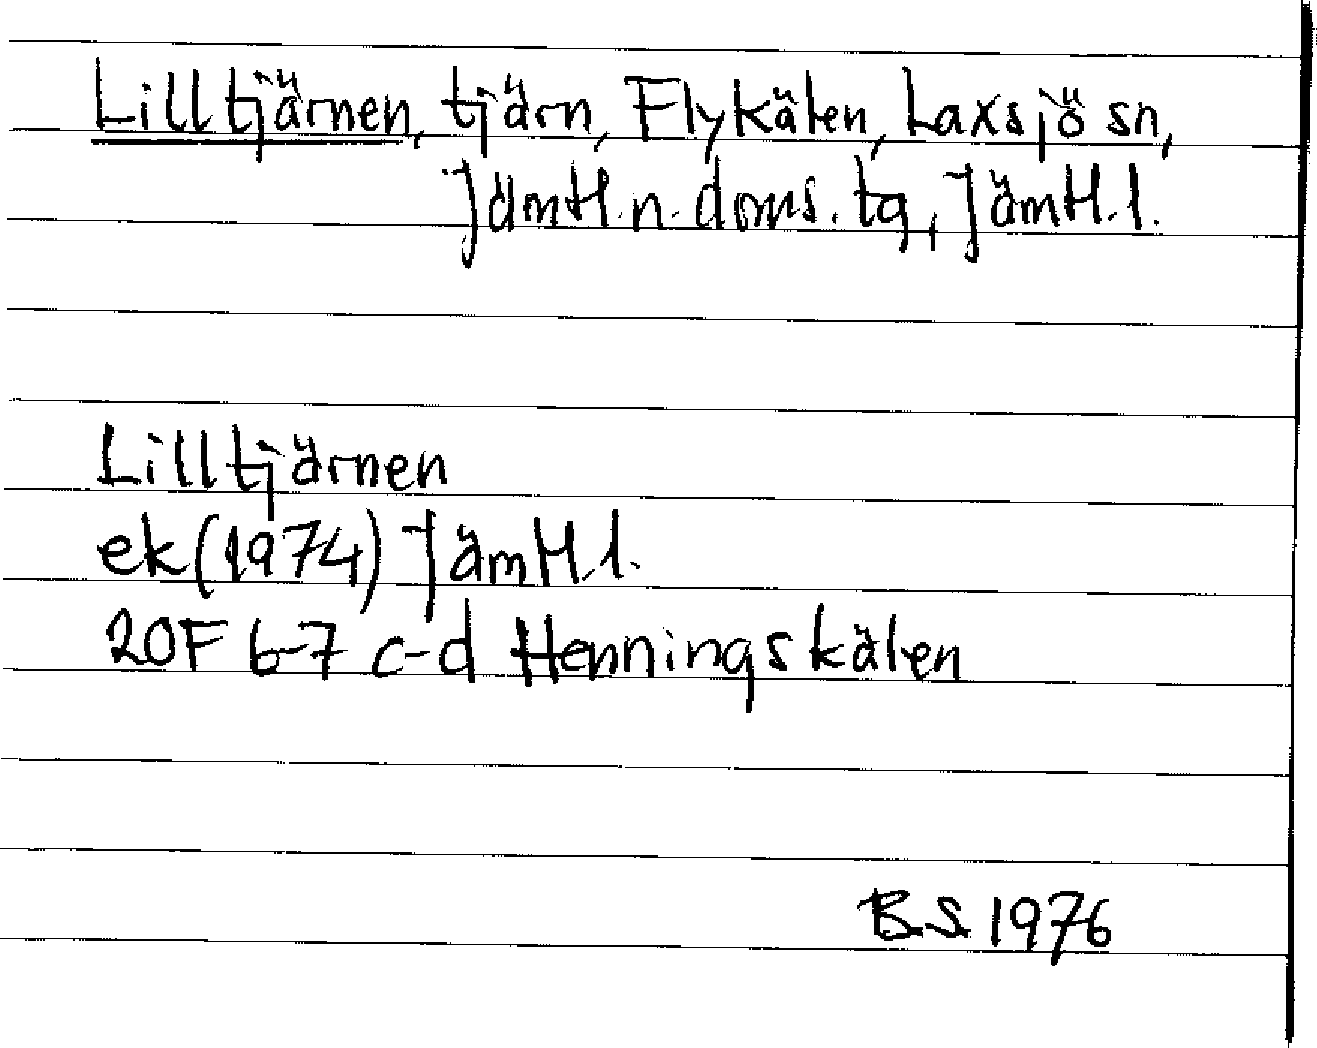 Lilltjärnen, tjärn, Flykälen, Laxsjö sn,
Jämtl.n. doms. tg, Jämtl.l.
Lilltjärnen
ek (1974) Jämtl.l.
20F 6-7 c-d Henningskälen
BS 1976